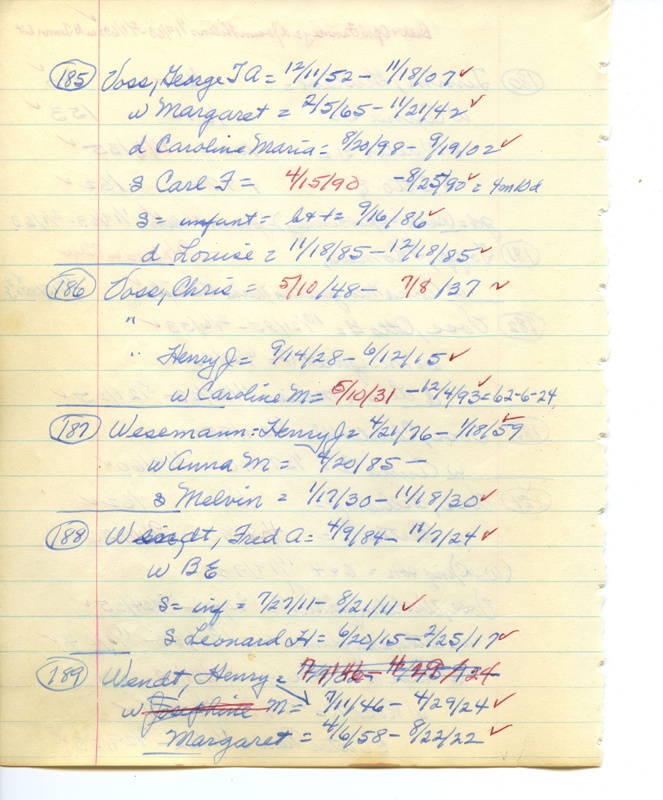 185 Voss, George T A = 12/11/52 - 11/18/07 ✓
w Margaret = 2/5/65 - 11/21/42 ✓
d Caroline Maria = 8/20/98 - 9/19/02 ✓
s Carl F = 4/15/90 - 8/25/90 ✓ = 4m10d
s = infant = b + t = 9/16/86 ✓
d Louise = 11/18/85 - 12/18/85 ✓
186 Voss, Chris = 5/10/48 - 7/8/37 ✓
"
" Henry J = 9/14/28 - 6/12/15 ✓
w Caroline M = 5/10/31 - 12/4/93 ✓ = 62-6-24
187 Wesemann: Henry J = 4/21/76 - 1/18/59 ✓
w Anna M = 4/20/85 -
s Melvin = 1/17/30 - 11/18/30 ✓
188 Wendt, Fred A = 4/9/84 - 11/7/24 ✓
w B E
s = inf = 7/27/11 - 8/21/11 ✓
s Leonard H = 6/20/15 - 2/25/17 ✓
189 Wendt, Henry =
w Josephine M = 7/11/46 - 4/29/24 ✓
Margaret = 4/6/58 - 8/22/22 ✓